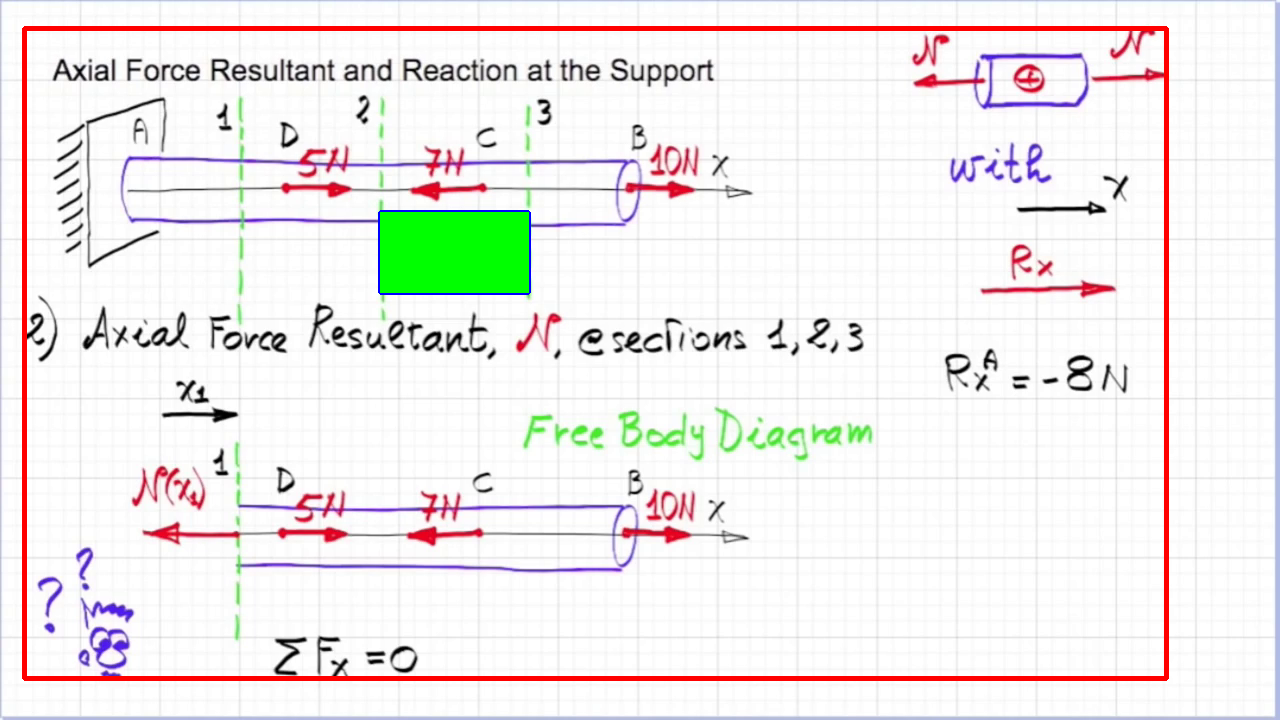 Axial Force Resultant and Reaction at the Support
N N
+
A 1 D 2 C 3 B
5N 7N 10N x
with
x
Rx
2) Axial Force Resultant, N, @sections 1,2,3
RxA = -8N
x1
Free Body Diagram
1 D C B
N(x1) 5N 7N 10N x
? ?
ΣFx = 0